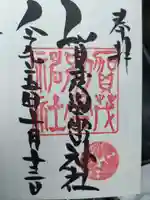 奉拝
賀茂別雷神社
令和五年十月十三日
賀茂
別雷
神社